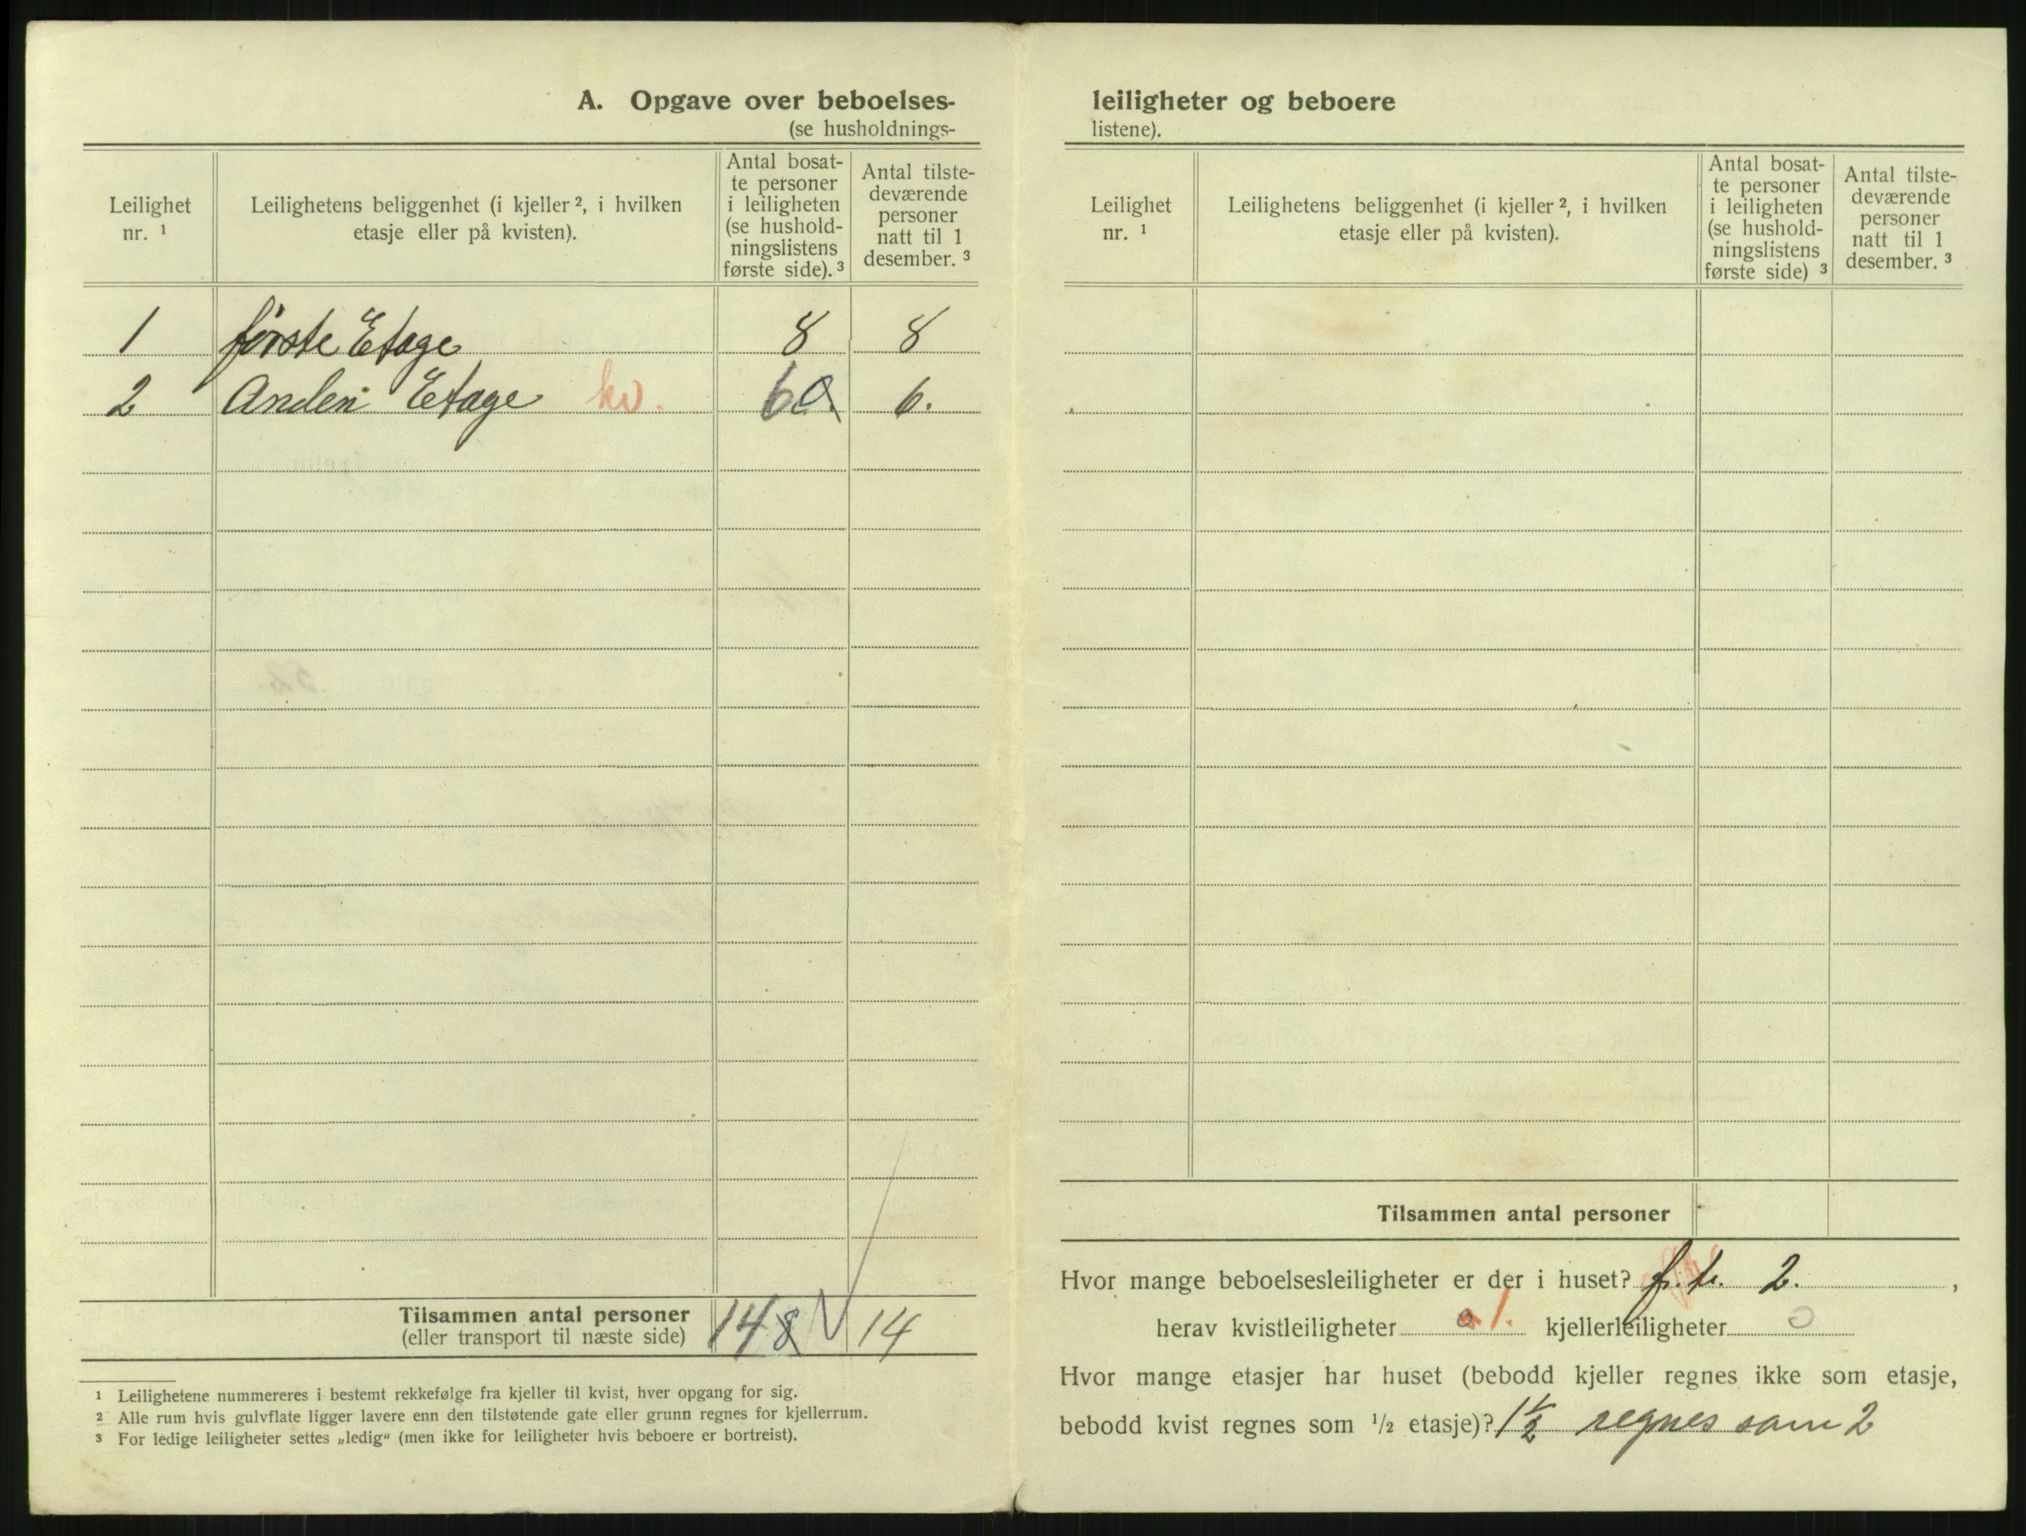 A. Opgave over beboelses-
(se husholdnings-
Leilighet nr. ¹
Leilighetens beliggenhet (i kjeller ², i hvilken etasje eller på kvisten).
Antal bosat-
te personer
i leiligheten
(se hushold-
ningslistens
første side). ³
Antal tilste-
deværende
personer
natt til 1
desember. ³
1 første Etage 8 8
2 Anden Etage kv. 6 0 6.
Tilsammen antal personer
(eller transport til næste side) 14 8 14
¹ Leilighetene nummereres i bestemt rekkefølge fra kjeller til kvist, hver opgang for sig.
² Alle rum hvis gulvflate ligger lavere enn den tilstøtende gate eller grunn regnes for kjellerrum.
³ For ledige leiligheter settes „ledig“ (men ikke for leiligheter hvis beboere er bortreist).
leiligheter og beboere
listene).
Leilighet nr. ¹
Leilighetens beliggenhet (i kjeller ², i hvilken etasje eller på kvisten).
Antal bosat-
te personer
i leiligheten
(se hushold-
ningslistens
første side) ³
Antal tilste-
deværende
personer
natt til 1
desember. ³
Tilsammen antal personer
Hvor mange beboelsesleiligheter er der i huset? 2. ,
herav kvistleiligheter 0 1. kjellerleiligheter 0
Hvor mange etasjer har huset (bebodd kjeller regnes ikke som etasje,
bebodd kvist regnes som ¹/₂ etasje)? 1½ regnes som 2